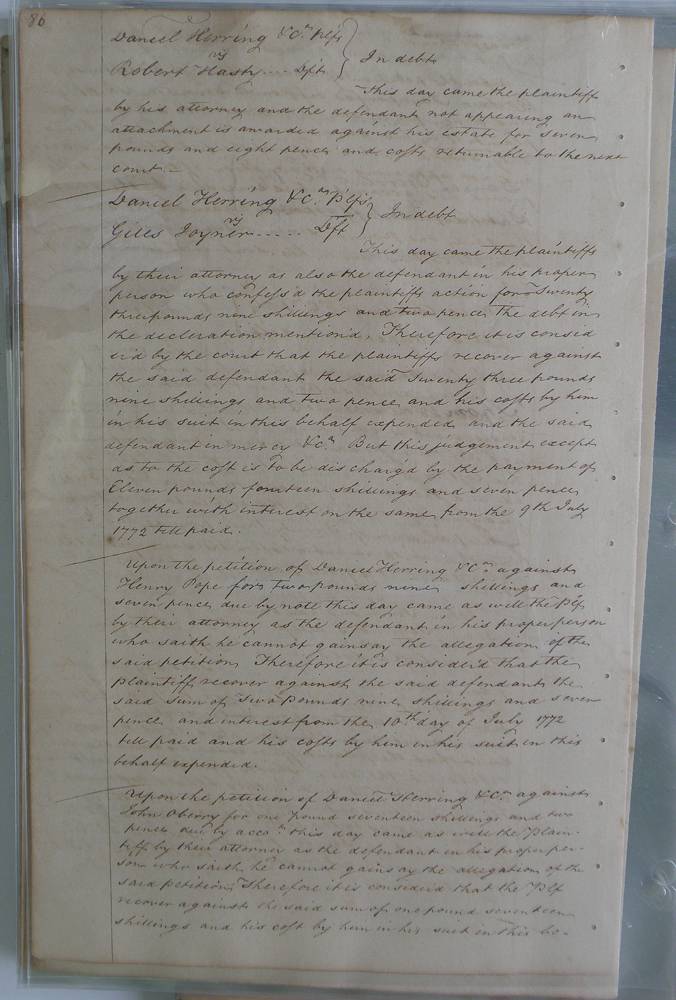 86
Daniel Herring &C.º Plfs } In debt
vs
Robert Hasty .... Dft
This day came the plaintiff
by his attorney and the defendant not appearing an
attachment is awarded against his estate for seven
pounds and eight pence and costs returnable to the next
court.
Daniel Herring &C.º Plfs } In debt
vs
Giles Joyner ..... Dft
This day came the plaintiffs
by their attorney as also the defendant in his proper
person who confess'd the plaintiffs action for Twenty
three pounds nine shillings and two pence the debt in
the decleration mention'd, Therefore it is consid
er'd by the court that the plaintiffs recover against
the said defendant the said Twenty three pounds
nine shillings and two pence and his costs by him
in his suit in this behalf expended and the said
defendant in mercy &C.ª But this judgement except
as to the cost is to be discharg'd by the payment of
Eleven pounds fourteen shillings and seven pence
together with interest on the same from the 9th July
1772 till paid.
Upon the petition of Daniel Herring &C.º against
Henry Pope for two pounds nine shillings and
seven pence due by note this day came as well the Plf
by their attorney as the defendant in his proper person
who saith he cannot gainsay the allegation of the
said petition Therefore it is consider'd that the
plaintiff recover against the said defendant the
said sum of Two pounds nine shillings and seven
pence and interest from the 10th day of July 1772
till paid and his costs by him in his suit in this
behalf expended.
Upon the petition of Daniel Herring &C.º against
John Oberry for one pound seventeen shillings and two
pence due by acco.t this day came as well the Plain-
tiff by their attorney as the defendant in his proper per-
son who saith he cannot gainsay the allegation of the
said petition, Therefore it is consider'd that the Plf
recover against the said sum of one pound seventeen
shillings and his cost by him in his suit in this be-